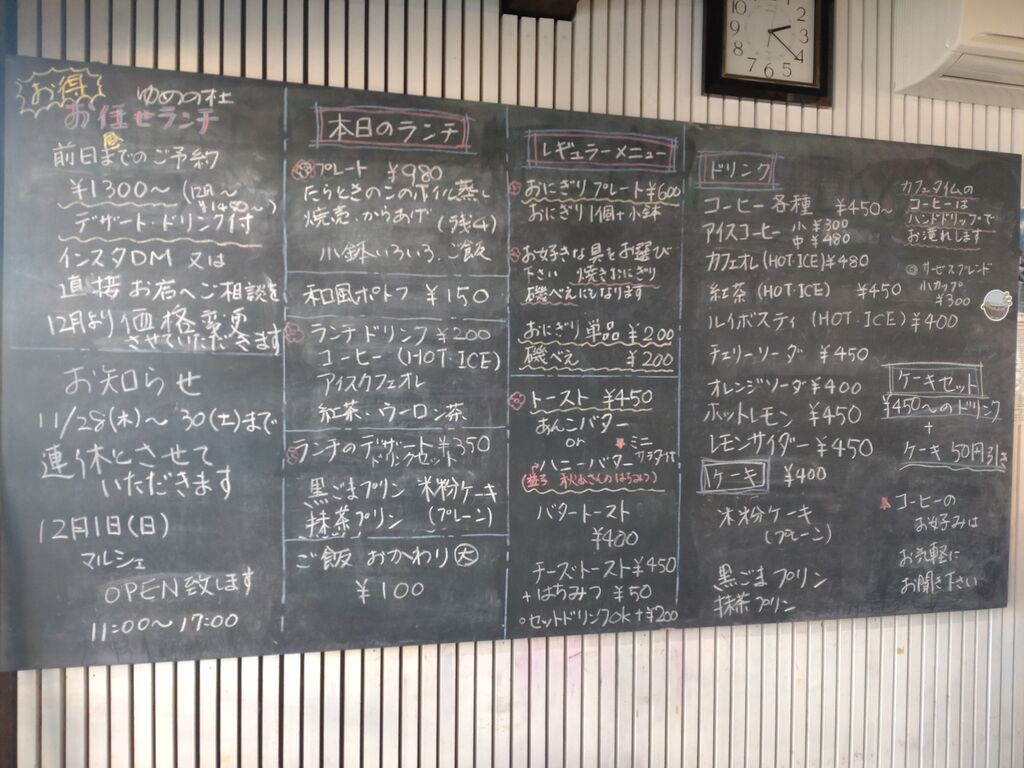 お得
ゆめの杜
お任せランチ
前日までのご予約
¥1300〜 (12月〜
¥1480〜)
デザート・ドリンク付
インスタDM 又は
直接お店へご相談を
12月より価格変更
させていただきます
お知らせ
11/28(木)〜30(土)まで
連休とさせて
いただきます
12月1日(日)
マルシェ
OPEN致します
11:00〜17:00
本日のランチ
プレート ¥980
たらときのこのホイル蒸し
焼売、からあげ (残4)
小鉢いろいろ、ご飯
和風ポトフ ¥150
ランチドリンク ¥200
コーヒー (HOT・ICE)
アイスカフェオレ
紅茶・ウーロン茶
ランチのデザート ¥350
ドリンクセット
黒ごまプリン 米粉ケーキ
抹茶プリン (プレーン)
ご飯 おかわり 大
¥100
レギュラーメニュー
おにぎりプレート ¥600
おにぎり1個+小鉢
お好きな具をお選び
下さい 焼きおにぎり
磯べえにもなります
おにぎり単品 ¥200
磯べえ ¥200
トースト ¥450
あんこバター
or ミニサラダ付
ハニーバター
さんのはちみつ)
バタートースト
¥400
チーズ・トースト ¥450
+はちみつ ¥50
○セットドリンクOK +¥200
ドリンク
コーヒー各種 ¥450〜
アイスコーヒー 小 ¥300
中 ¥480
カフェオレ(HOT ICE) ¥480
紅茶 (HOT ICE) ¥450
ルイボスティ (HOT・ICE) ¥400
チェリーソーダ ¥450
オレンジソーダ ¥400
ホットレモン ¥450
レモンサイダー ¥450
ケーキ ¥400
米粉ケーキ
(プレーン)
黒ごまプリン
抹茶プリン
カフェタイムの
コーヒーは
ハンドドリップで
お淹れします
◎サービスブレンド
小カップ
¥300
ケーキセット
¥450〜のドリンク
+
ケーキ 50円引き
コーヒーの
お好みは
お気軽に
お聞き下さい
10
9
8
7
6
5
4
3
2